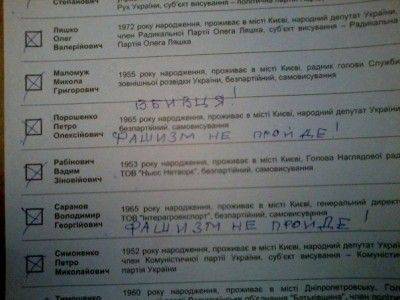 Степанович
Рух України, суб'єкт висування – політична партія
Ляшко
Олег
Валерійович
1972 року народження, проживає в місті Києві, народний депутат України,
член Радикальної Партії Олега Ляшка, суб'єкт висування – Радикальна
Партія Олега Ляшка
Маломуж
Микола
Григорович
1955 року народження, проживає в місті Києві, радник голови Служби
зовнішньої розвідки України, безпартійний, самовисування
ВБИВЦЯ!
Порошенко
Петро
Олексійович
1965 року народження, проживає в місті Києві, народний депутат України
безпартійний, самовисування
ФАШИЗМ НЕ ПРОЙДЕ!
Рабінович
Вадим
Зіновійович
1953 року народження, проживає в місті Києві, Голова Наглядової ради
ТОВ "Ньюс Нетворк", безпартійний, самовисування
Саранов
Володимир
Георгійович
року народження, проживає в місті Києві, генеральний директор
ТОВ "Інтерагроекспорт", безпартійний, самовисування
ФАШИЗМ НЕ ПРОЙДЕ!
Симоненко
Петро
Миколайович
1952 року народження, проживає в місті Києві, народний депутат
член Комуністичної партії України, суб'єкт висування – Комуністична
партія України
Тимошенко
1960 року народження, проживає в місті Дніпропетровську,